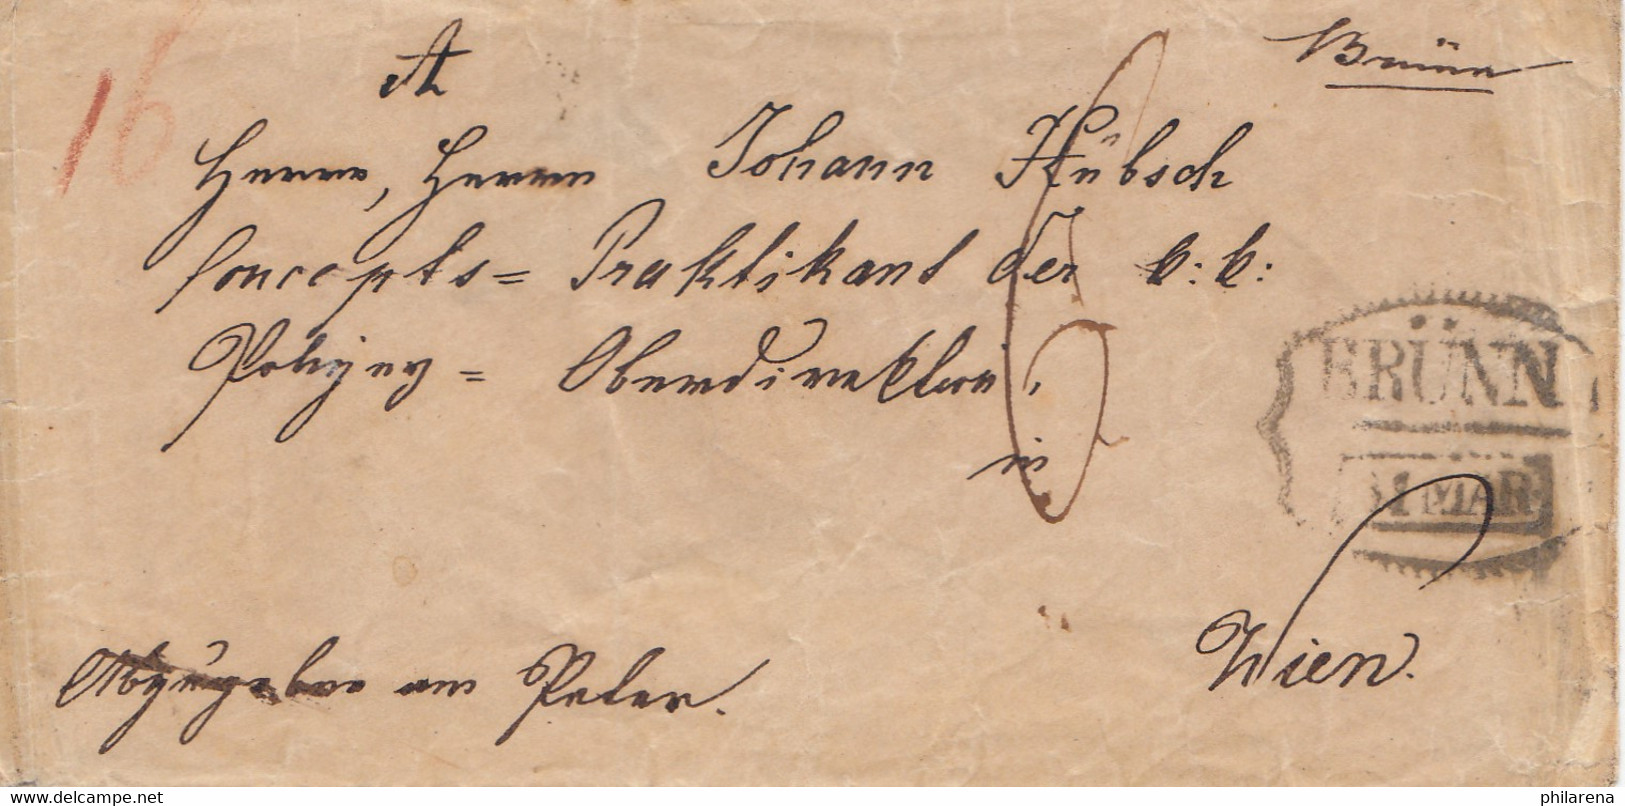 16
Brünn
A
Herrn, Herrn Johann Hübsch
Concepts= Praktikant der k: k:
Polizey= Oberdirektion,
in
6
BRÜNN
31 MAR
Wien.
Abzugeben am Peter.
www.delcampe.net
philarena